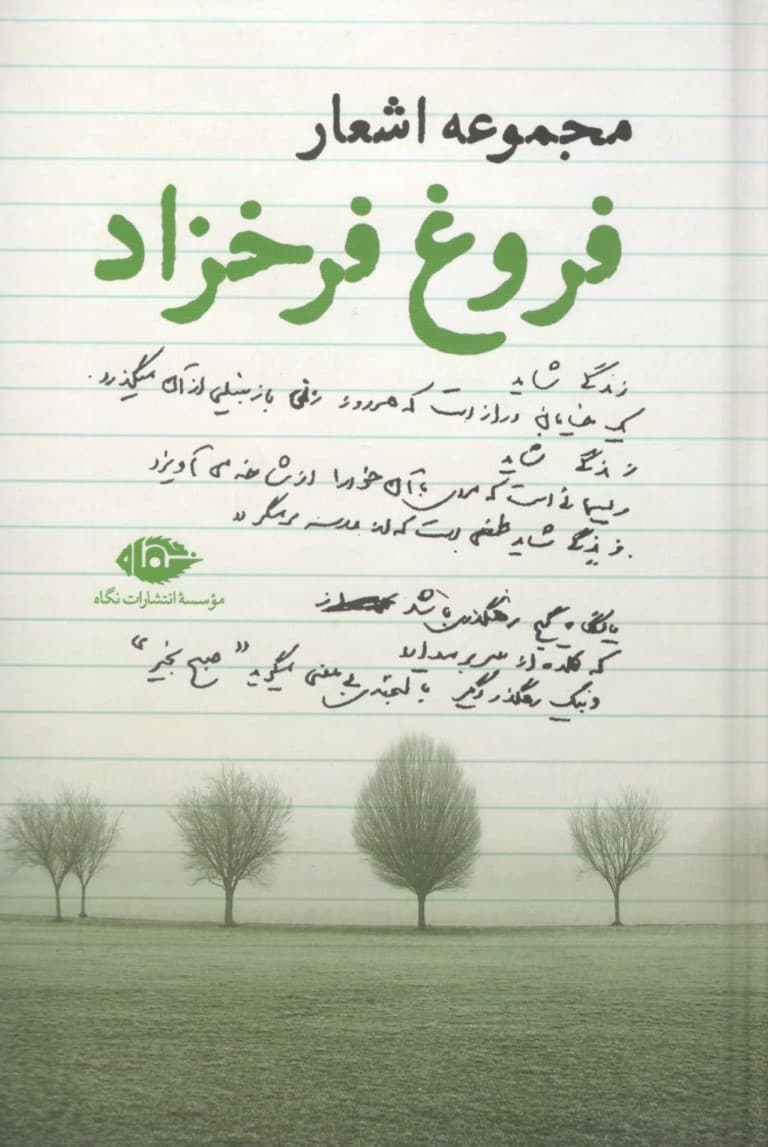 مجموعه اشعار
فروغ فرخزاد
زندگی شاید
یک خیابان دراز است که هر روز زنی با زنبیلی از آن میگذرد.
زندگی شاید
ریسمانی است که مردی با آن خود را از شاخه می آویزد
زندگی شاید طفلی است که از مدرسه بر میگردد
مؤسسهٔ انتشارات نگاه
نگاه
یا نگاه گیج رهگذری باشد
که کلاه از سر بر میدارد
و به یک رهگذر دیگر با لبخندی بی معنی میگوید "صبح بخیر"